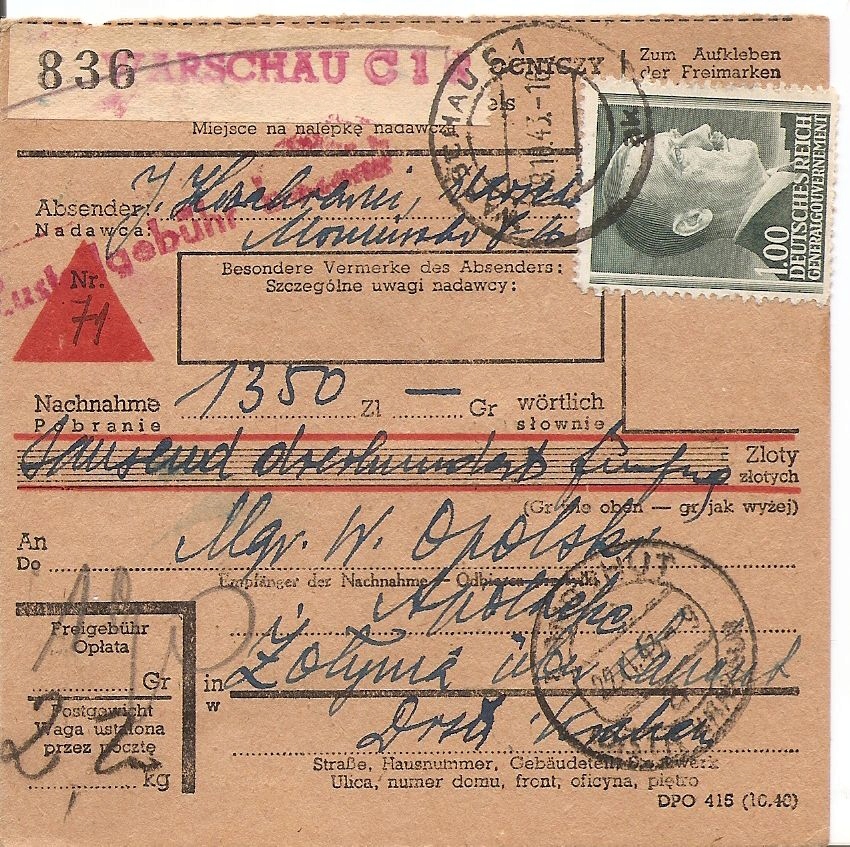 836 WARSCHAU C 1
OGNICZY
Zum Aufkleben
der Freimarken
els
Miejsce na nalepkę nadawczą
SCHAU C 1
8.10.43.-18
Absender:
Nadawca:
J.
Zustellgebühr
Besondere Vermerke des Absenders:
Szczególne uwagi nadawcy:
Nr.
71
1.00
DEUTSCHES REICH
GENERALGOUVERNEMENT
Nachnahme 1350 Zl — Gr wörtlich
Pobranie słownie
Tausend dreihundert fünfzig Zloty
złotych
(Gr wie oben — gr jak wyżej)
An Mgr. W. Opolski
Do
Empfänger der Nachnahme — Odbiorca
Apotheke
Freigebühr
Opłata
Gr
in Żołynia über Lancut
w
Postgewicht
Waga ustalona
przez pocztę
2
kg
Distr. Krakau
Straße, Hausnummer, Gebäudeteil, Stockwerk
Ulica, numer domu, front, oficyna, piętro
DPO 415 (10.40)